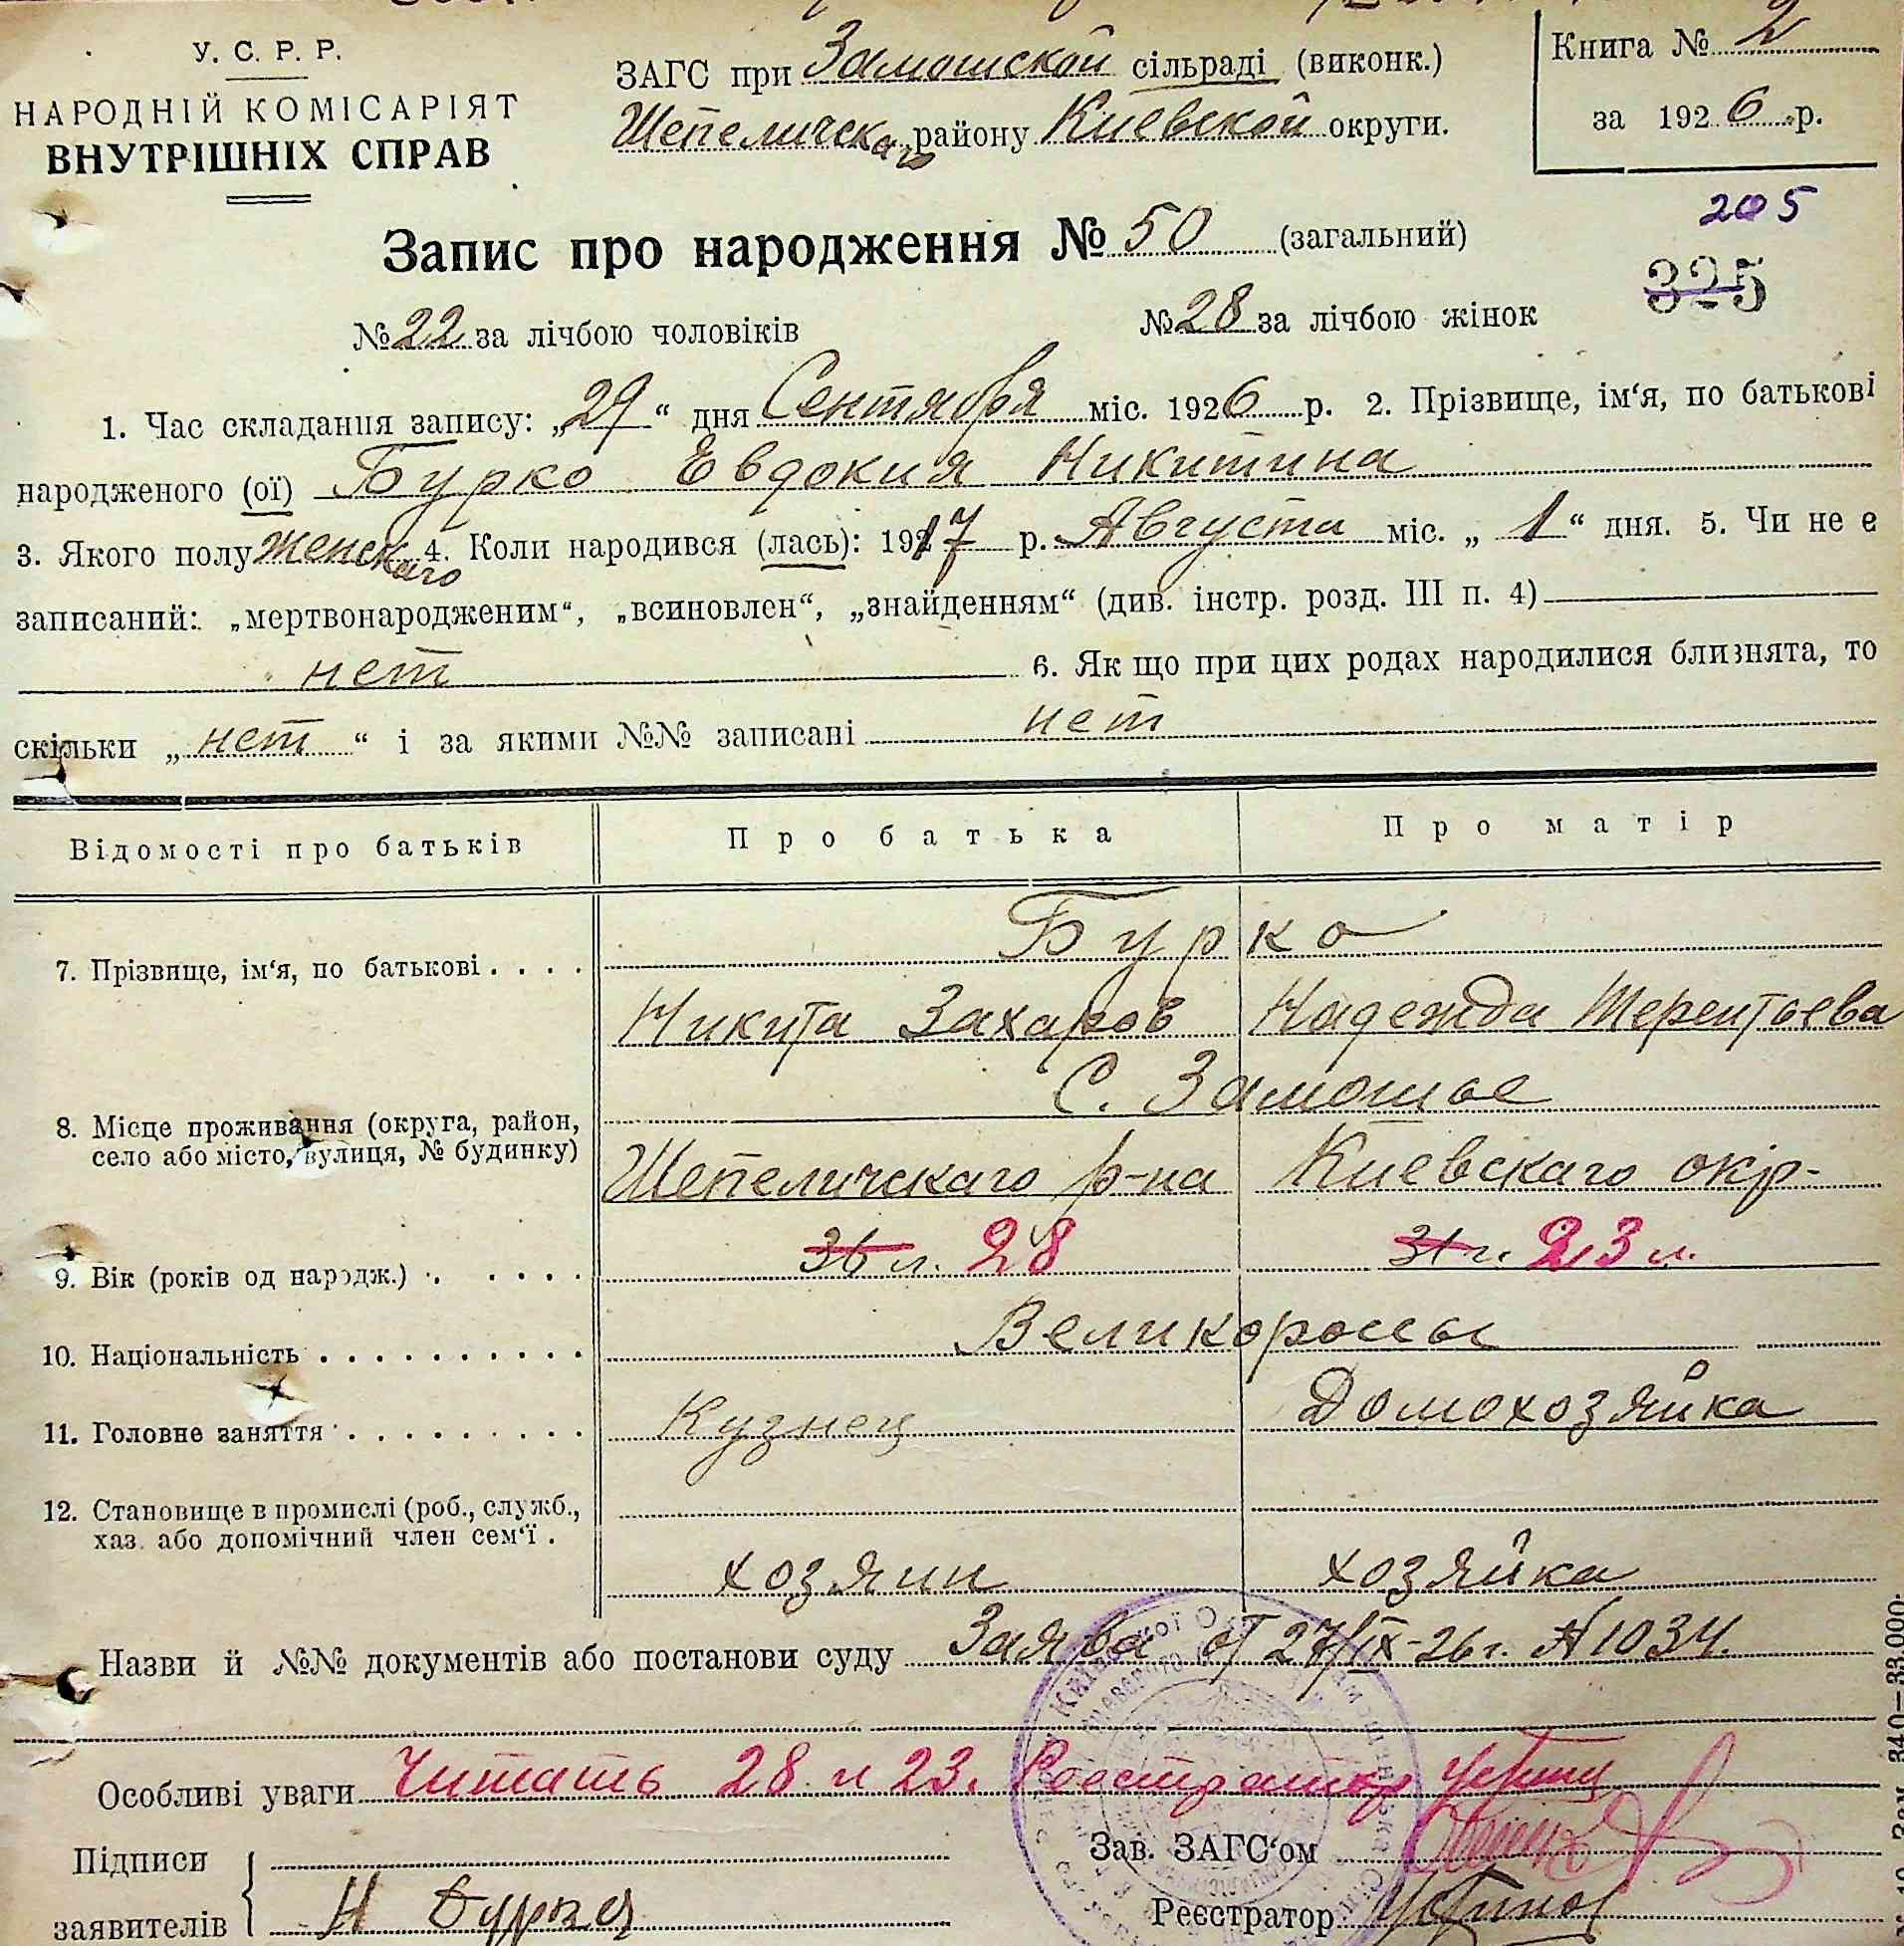 У. С. Р. Р.
НАРОДНІЙ КОМІСАРІЯТ
ВНУТРІШНІХ СПРАВ
ЗАГС при Замошской сільраді (виконк.)
Шепеличскаго району Киевской округи.
Книга № 2
за 1926 р.
205
325
Запис про народження № 50 (загальний)
№ 22 за лічбою чоловіків № 28 за лічбою жінок
1. Час складання запису: „29“ дня Сентября міс. 1926 р. 2. Прізвище, ім‘я, по батькові
народженого (ої) Бурко Евдокия Никитина
3. Якого полу женскаго 4. Коли народився (лась): 1917 р. Августа міс. „1“ дня. 5. Чи не є
записаний: „мертвонародженим“, „всиновлен“, „знайденням“ (див. інстр. розд. III п. 4)
нет 6. Як що при цих родах народилися близнята, то
скільки „нет“ і за якими №№ записані нет
Відомості про батьків Про батька Про матір
Бурко
7. Прізвище, ім‘я, по батькові . . . .
Никита Захаров Надежда Терентьева
С. Замошье
8. Місце проживання (округа, район,
село або місто, вулиця, № будинку)
Шепеличскаго р-на Киевскаго окр-
9. Вік (років од народж.) . . . . . 36 л. 28 31 г. 23 л.
10. Національність . . . . . . . . . . Великороссы
11. Головне заняття . . . . . . . . . Кузнец Домохозяйка
12. Становище в промислі (роб., служб.,
хаз. або допомічний член сем‘ї .
хозяин хозяйка
Назви й №№ документів або постанови суду Заява от 27/IX-26 г. № 1034.
Особливі уваги Читать 28 и 23. Реестратор
Підписи
заявителів Н Бурко
Зав. ЗАГС‘ом
Реєстратор